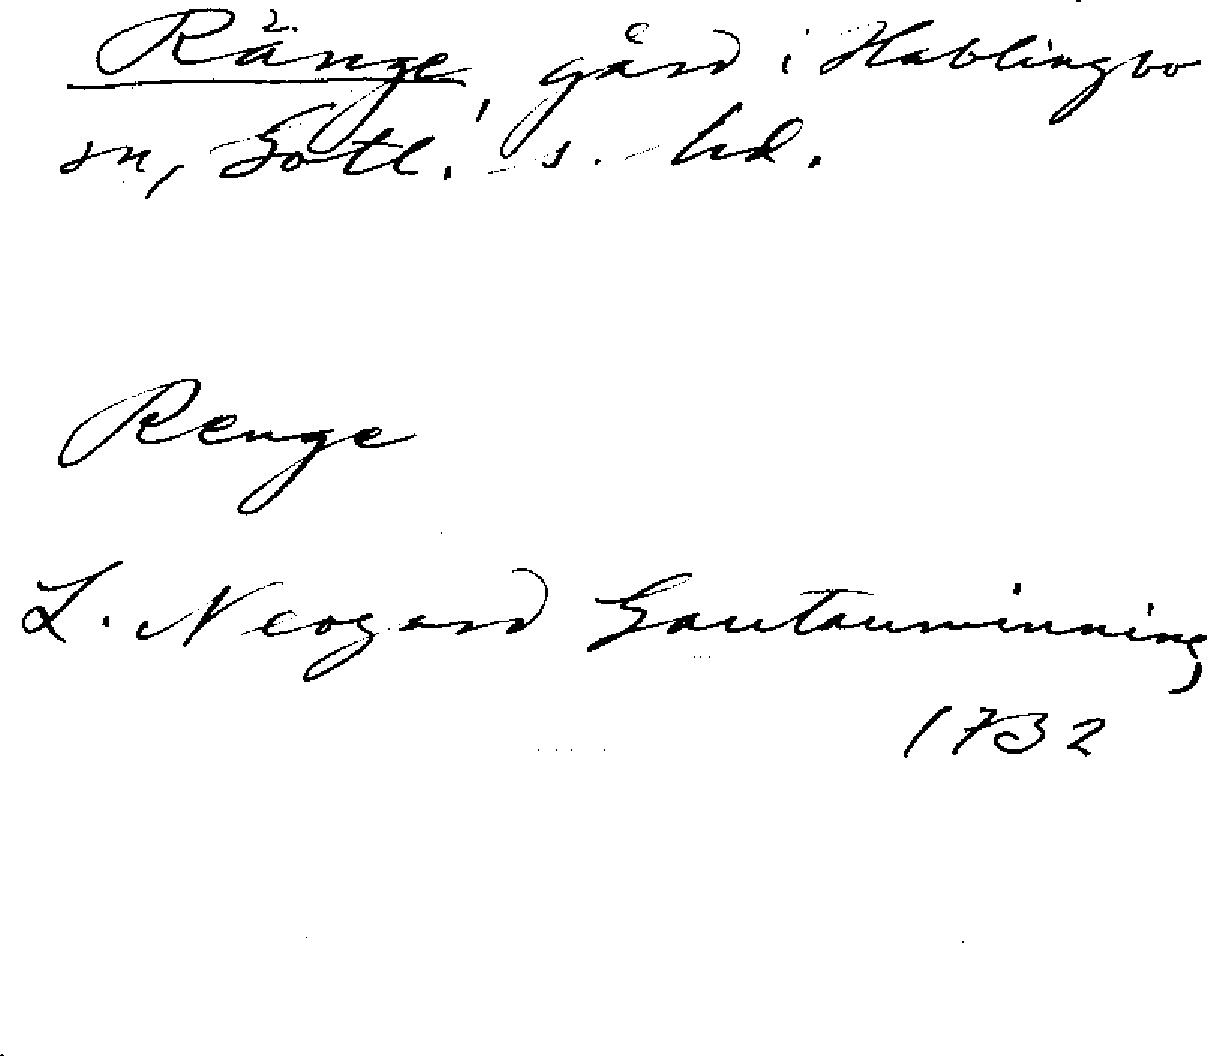 Ränge gård i Hablingbo
sn, Gotl. s. hd.
Renge
L. Neogard Gautauminning,
1732